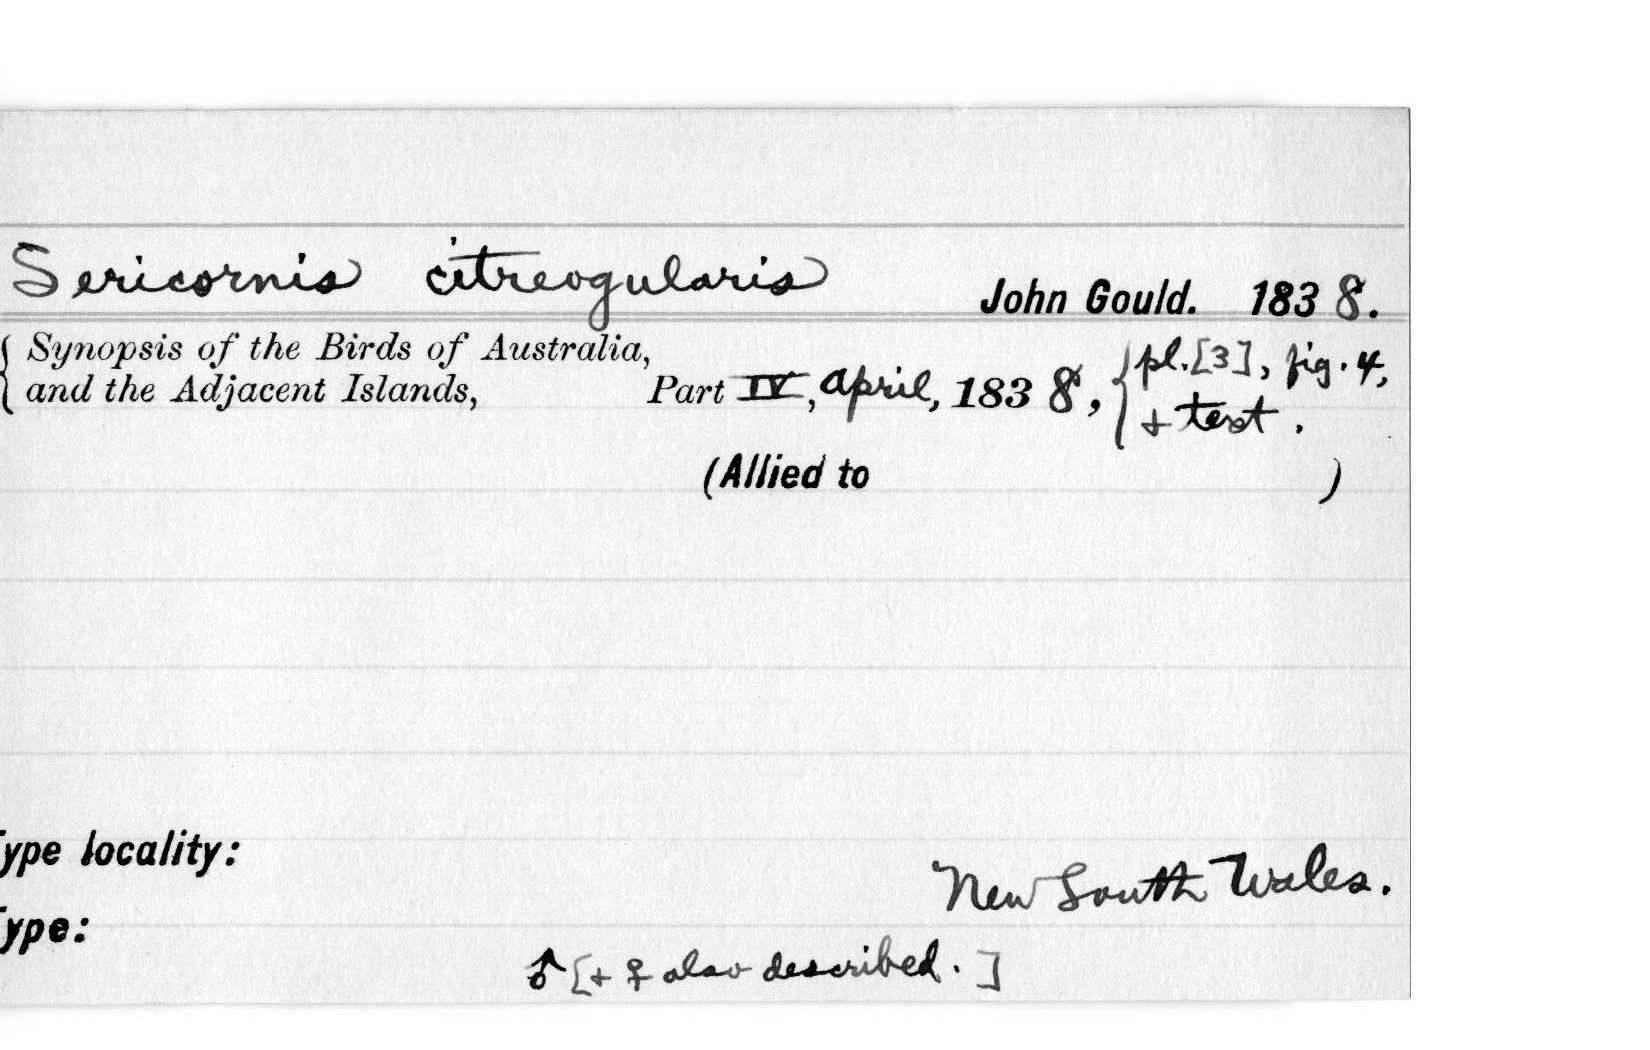 Sericornis citreogularis John Gould. 1838.
{ Synopsis of the Birds of Australia,
and the Adjacent Islands, Part IV, April, 1838, { pl. [3], fig. 4,
+ text.
(Allied to )
ype locality:
New South Wales.
ype:
♂ [+ ♀ also described.]